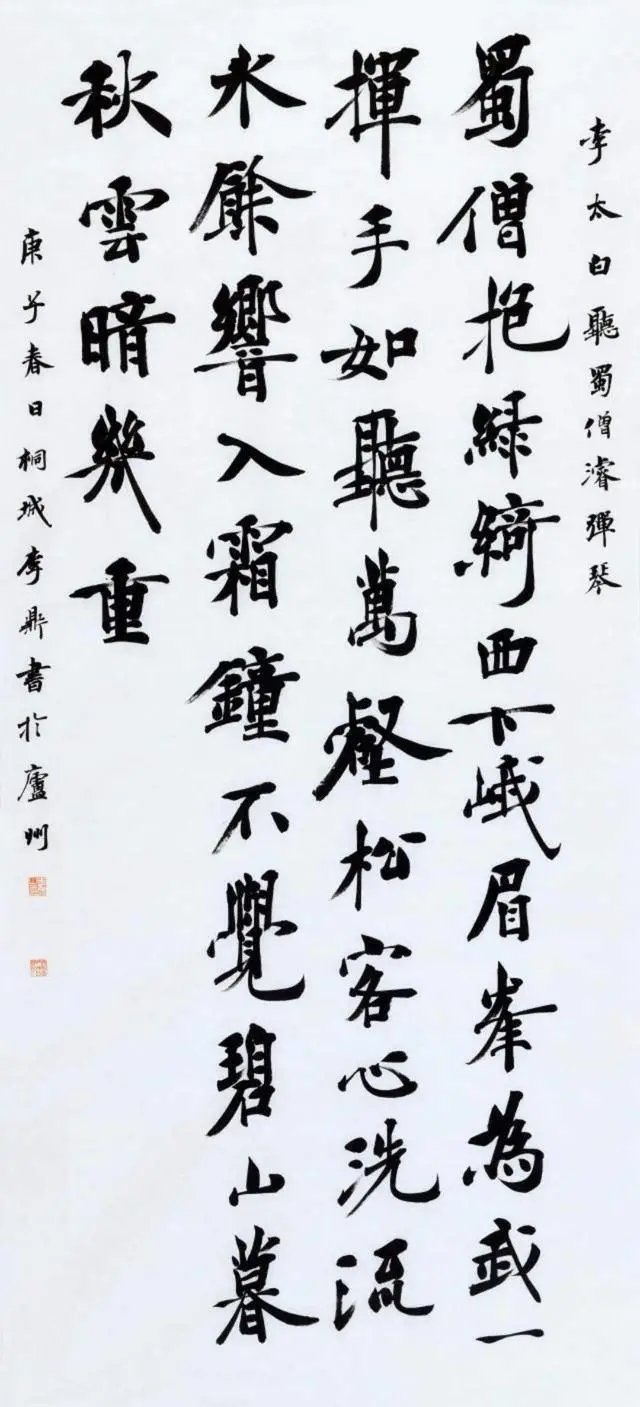 李太白聽蜀僧濬彈琴
蜀僧抱綠綺西下峨眉峯為我一
揮手如聽萬壑松客心洗流
水餘響入霜鐘不覺碧山暮
秋雲暗幾重
庚子春日桐城李鼎書於廬州